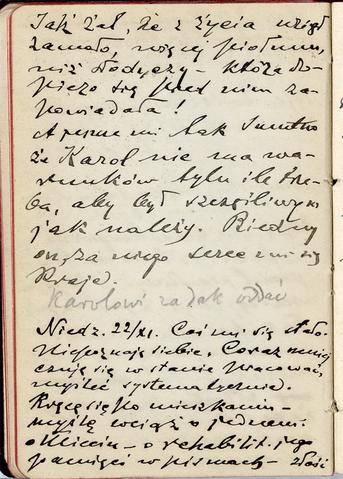 Jak żal, że z życia wziął
zamało, więcej piołunu,
niż słodyczy – która do-
piero się przed nim za-
powiadała!
A pozatem mi tak smutno
że Karol nie ma wa-
runków tylu ile trze-
ba, aby być szczęśliwym
jak należy. Biedny
on, za niego serce mi się
kraje.
Karolowi zadak oddać
Niedz. 22/XI. Coś mi się stało.
Niepoznaję siebie. Coraz mniej
czuję się w stanie pracować,
myśleć systematycznie.
Kręcę się po mieszkaniu –
myślę wciąż o jednem:
o Mieciu – o rehabilit. jego
pamięci w pismach – złość